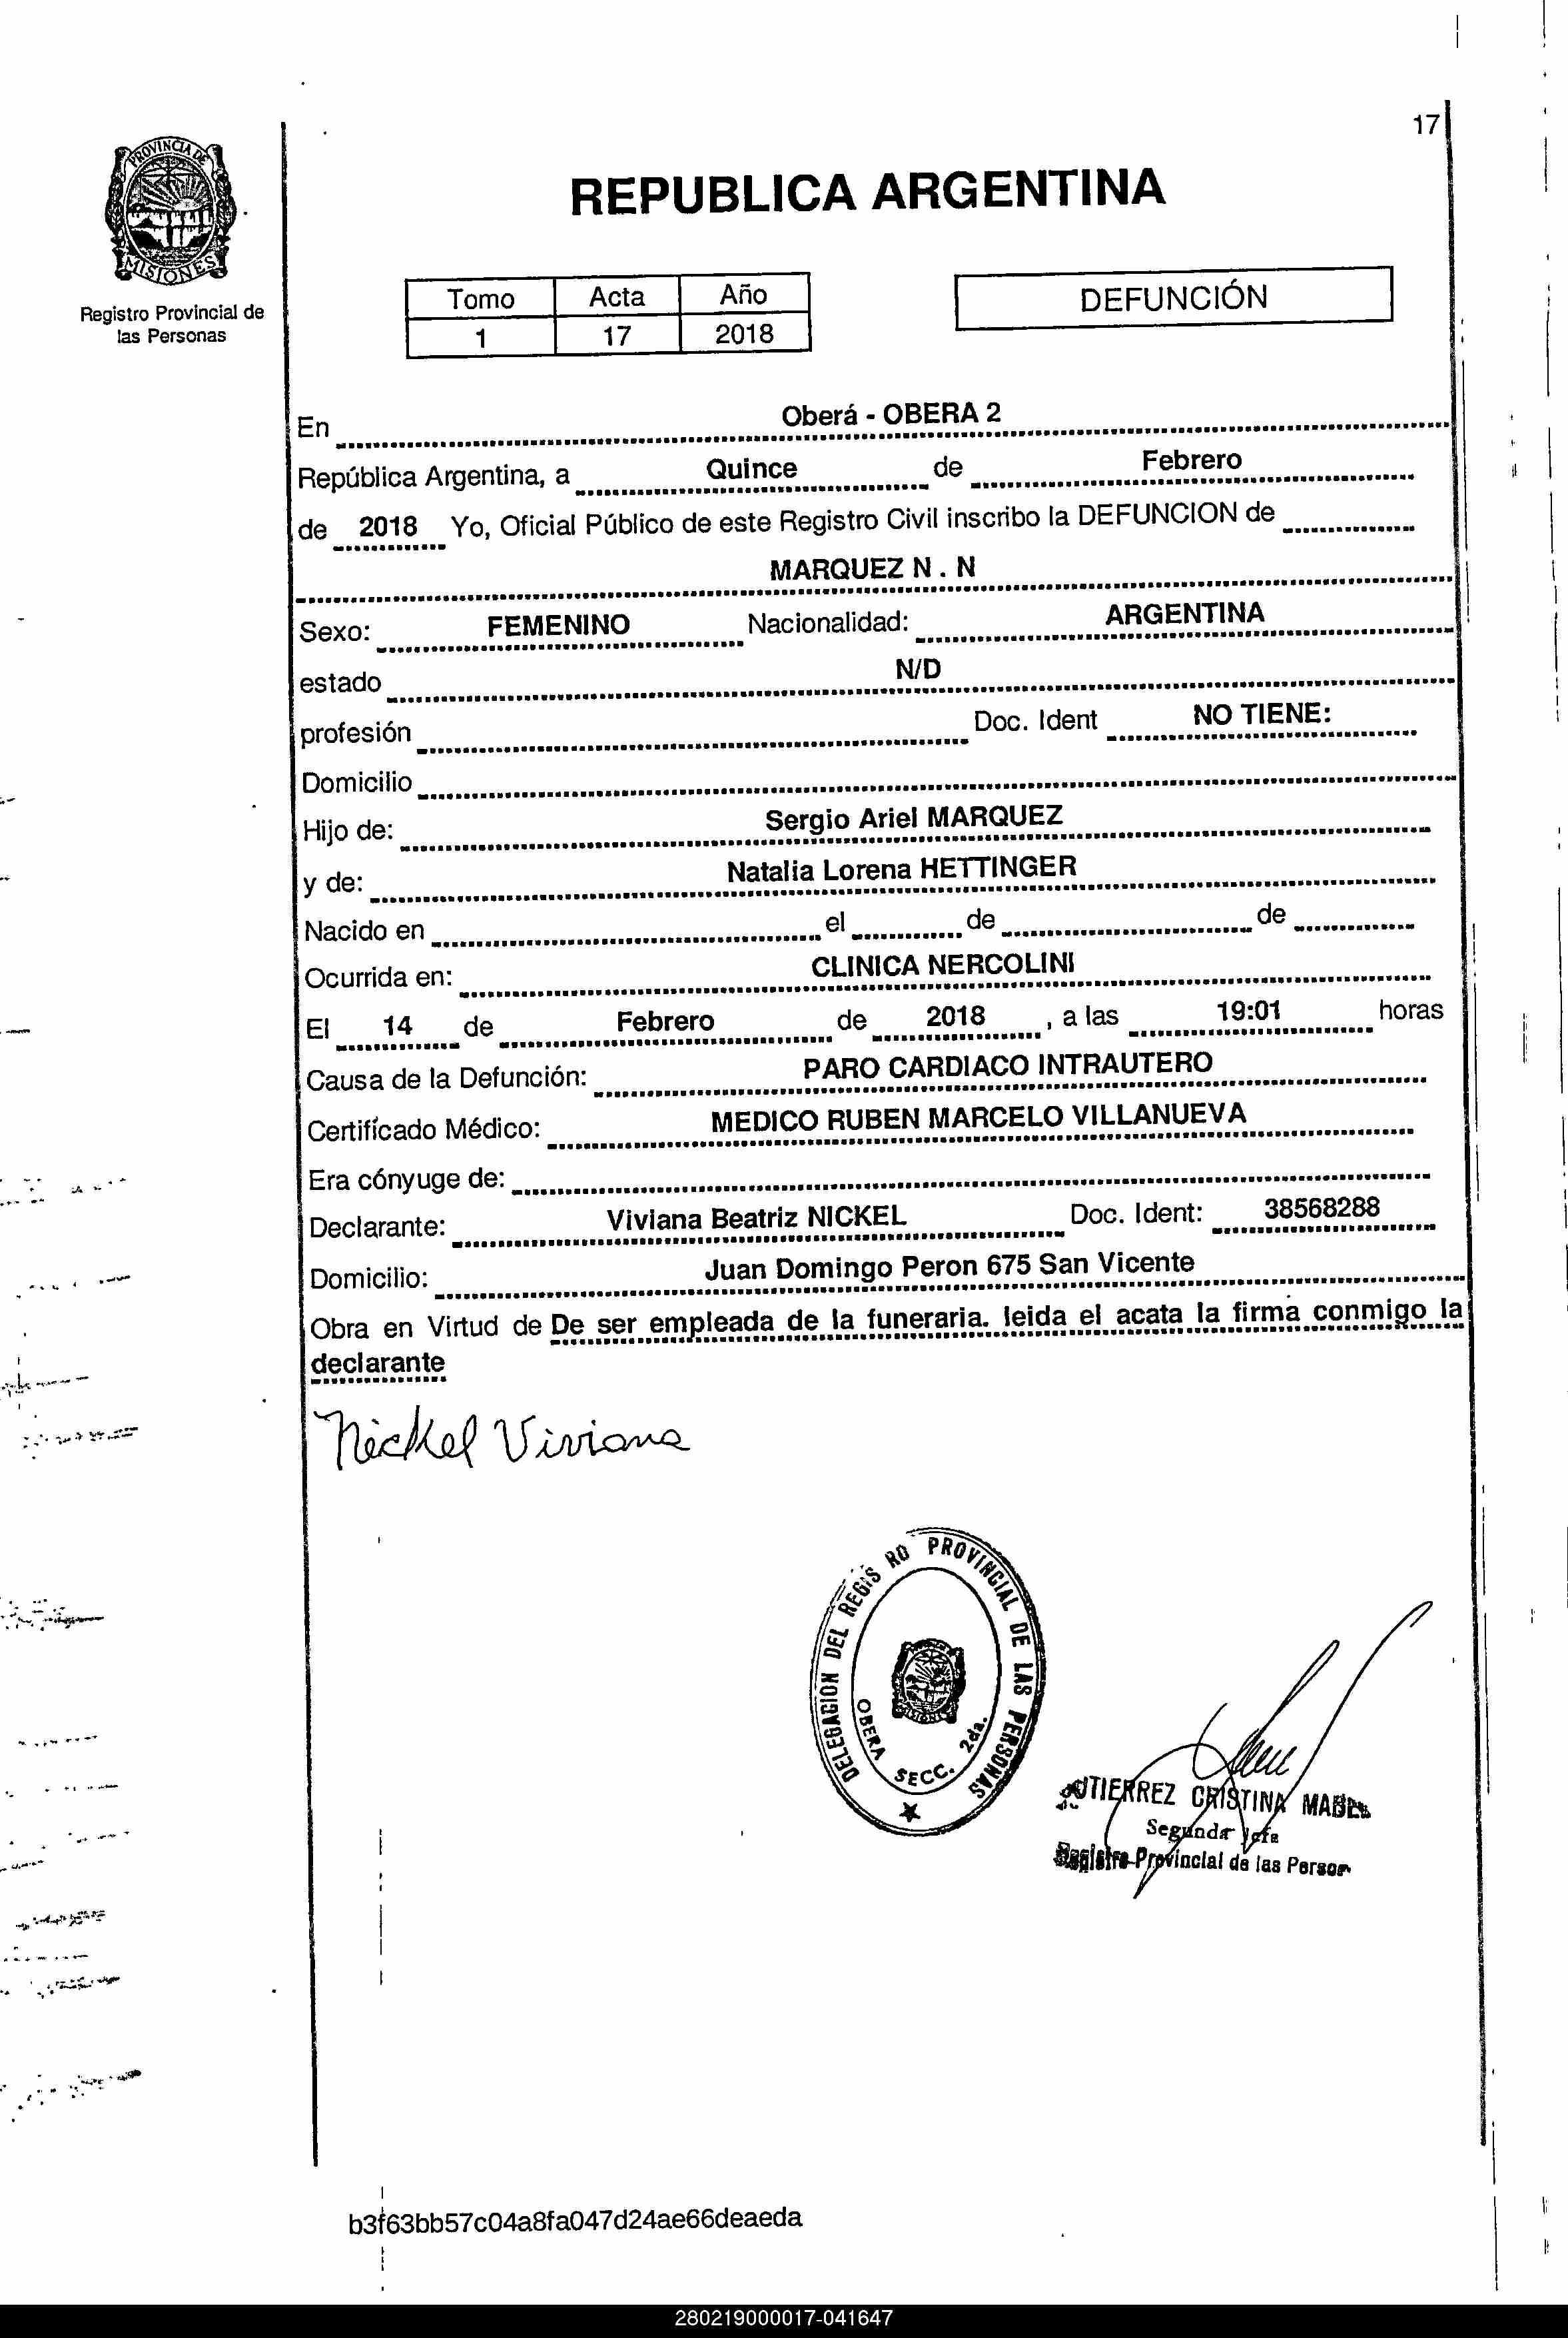 17
PROVINCIA DE
MISIONES
Registro Provincial de
las Personas
REPUBLICA ARGENTINA
Tomo Acta Año
1 17 2018
DEFUNCIÓN
En Oberá - OBERA 2
República Argentina, a Quince de Febrero
de 2018 Yo, Oficial Público de este Registro Civil inscribo la DEFUNCION de
MARQUEZ N . N
Sexo: FEMENINO Nacionalidad: ARGENTINA
estado N/D
profesión Doc. Ident NO TIENE:
Domicilio
Hijo de: Sergio Ariel MARQUEZ
y de: Natalia Lorena HETTINGER
Nacido en el de de
Ocurrida en: CLINICA NERCOLINI
El 14 de Febrero de 2018 , a las 19:01 horas
Causa de la Defunción: PARO CARDIACO INTRAUTERO
Certificado Médico: MEDICO RUBEN MARCELO VILLANUEVA
Era cónyuge de:
Declarante: Viviana Beatriz NICKEL Doc. Ident: 38568288
Domicilio: Juan Domingo Peron 675 San Vicente
Obra en Virtud de De ser empleada de la funeraria. leida el acata la firma conmigo la
declarante
Nickel Viviana
DELEGACION DEL REGIS RO PROVINCIAL DE LAS PERSONAS
OBERA SECC. 2da.
GUTIERREZ CRISTINA MABEL
Segunda Jefa
Registro Provincial de las Person
b3f63bb57c04a8fa047d24ae66deaeda
280219000017-041647